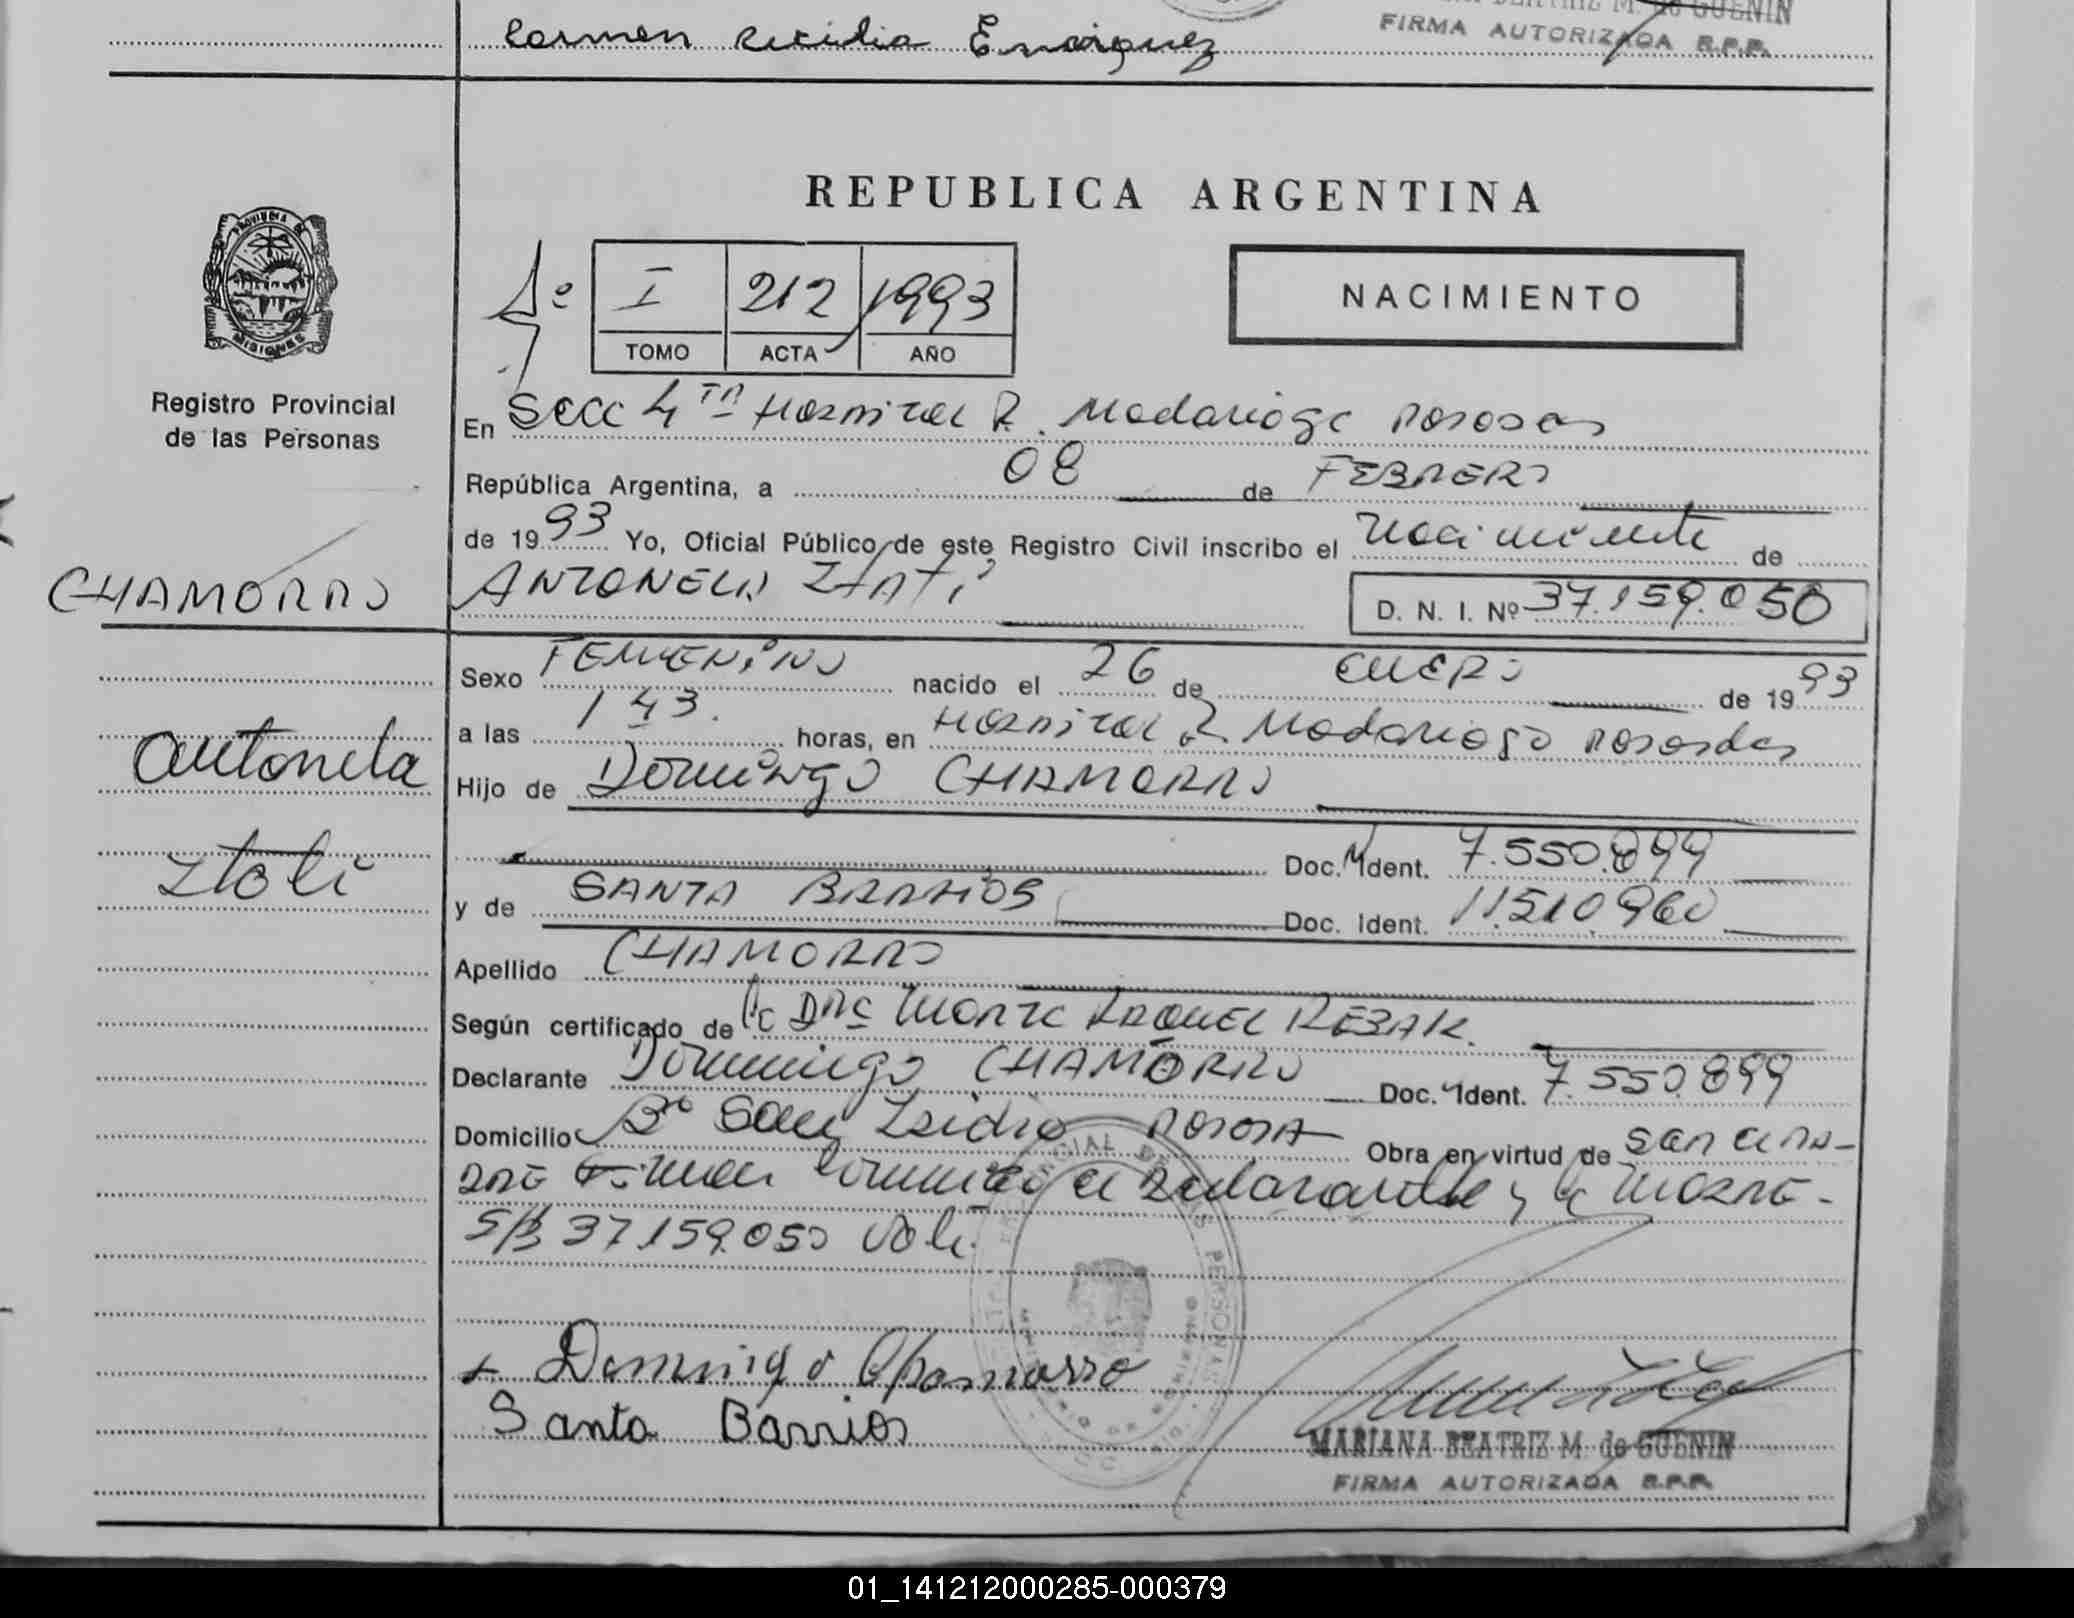 Carmen Cecilia Enriquez
MARIANA BEATRIZ M. de GUENIN
FIRMA AUTORIZADA R.P.P.
REPUBLICA ARGENTINA
PROVINCIA DE
MISIONES
Registro Provincial
de las Personas
I 212 1993
TOMO ACTA AÑO
NACIMIENTO
En Secc 4TA Hospital R. Madariaga Posadas
República Argentina, a 08 de FEBRERO
de 1993 Yo, Oficial Público de este Registro Civil inscribo el nacimiento de
CHAMORRO ANTONELA ITATÍ D. N. I. Nº 37.159.050
Sexo FEMENINO nacido el 26 de ENERO de 1993
a las 143. horas, en Hospital R Madariaga Posadas
Antonela
Hijo de Domingo CHAMORRO
Doc. Ident. 7.550.899
Itati
y de SANTA BARRIOS Doc. Ident. 11.510.960
Apellido CHAMORRO
Según certificado de la DRA RAQUEL REBAK.
Declarante Domingo CHAMORRO Doc. Ident. 7.550.899
Domicilio Bº San Isidro POSADAS Obra en virtud de
Firman el declarante y la MADRE-
S/B 37.159.050 Vale.
Domingo Chamorro
Santa Barrios
MARIANA BEATRIZ M. de GUENIN
FIRMA AUTORIZADA R.P.P.
01_141212000285-000379